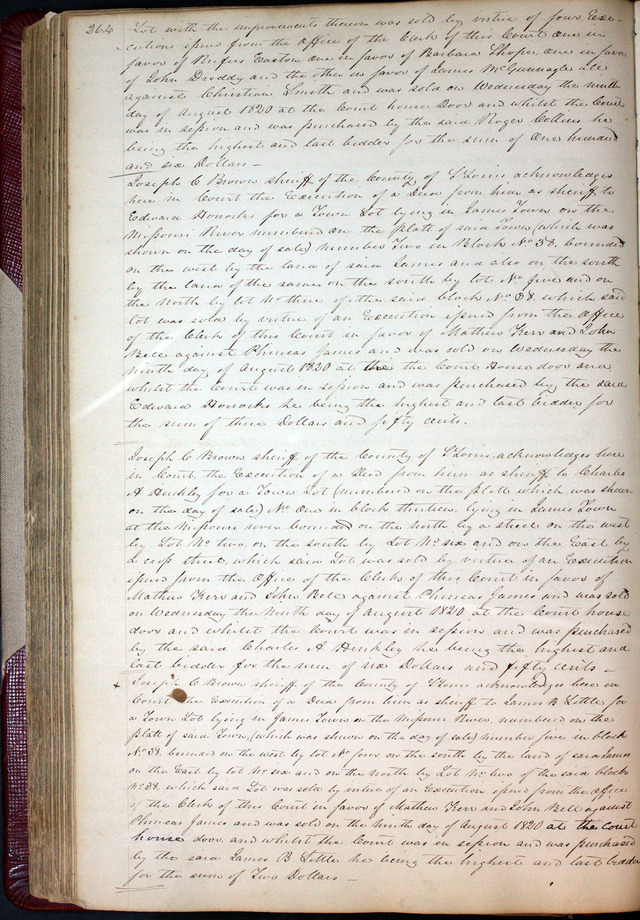 264 Lot with the improvements thereon was sold by virtue of four Exe-
cutions issued from the Office of the Clerk of this Court one in
favor of Rufus Easton one in favor of Barbara Shope one in favor
of John Droddy and the other in favor of James McGunnagle all
against Christian Smith and was sold on Wednesday the ninth
day of August 1820 at the Court house Door and whilst the Court
was in session and was purchased by the said Roger Collins he
being the highest and last bidder for the sum of One hundred
and six Dollars —
Joseph C Brown sheriff of the County of St Louis acknowledges
here in Court the Execution of a Deed from him as sheriff to
Edward Horrocks for a Town Lot lying in James Town on the
Missouri River numbered on the platt of said Town (which was
shown on the day of sale) number Two in Block No 38, bounded
on the west by the land of said James and also on the south
by the land of the same on the south by lot No five and on
the North by lot No three of the said block No 38 which said
lot was sold by virtue of an Execution issued from the Office
of the Clerk of this Court in favor of Mathew Kerr and John
Bell against Phineas James and was sold on Wednesday the
ninth day of August 1820 at the the Court House door and
whilst the Court was in session and was purchased by the said
Edward Horrocks he being the highest and last bidder for
the sum of three Dollars and fifty cents.
Joseph C Brown sheriff of the County of St Louis acknowledges here
in Court the Execution of a Deed from him as sheriff to Charles
A Hinkley for a Town Lot (numbered on the plott which was shown
on the day of sale) No One in block thirteen lying in James Town
at the Missouri river bounded on the north by a street on the west
by Lot No two, on the south by Lot No six and on the East by
a cross street, which said Lot was sold by virtue of an Execution
issued from the Office of the Clerk of this Court in favor of
Mathew Kerr and John Bell against Phineas James and was sold
on Wednesday the Ninth day of August 1820 at the Court house
door and whilst the Court was in session and was purchased
by the said Charles A Hinkley he being the highest and
last bidder for the sum of six Dollars and fifty cents —
Joseph C Brown sheriff of the County of St Louis acknowledges here in
Court the Execution of a Deed from him as sheriff to James B Little for
a Town Lot lying in James Town on the Missouri River, numbered on the
platt of said Town, (which was shown on the day of sale) number five in block
No 38, bounded on the west by lot No four on the south by the land of said James
on the East by lot No six and on the North by Lot No two of the said block
No 38, which said Lot was sold by virtue of an Execution issued from the office
of the Clerk of this Court in favor of Mathew Kerr and John Bell against
Phineas James and was sold on the ninth day of August 1820 at the Court
house door, and whilst the Court was in session and was purchased
by the said James B Little he being the highest and last bidder
for the sum of Two Dollars —